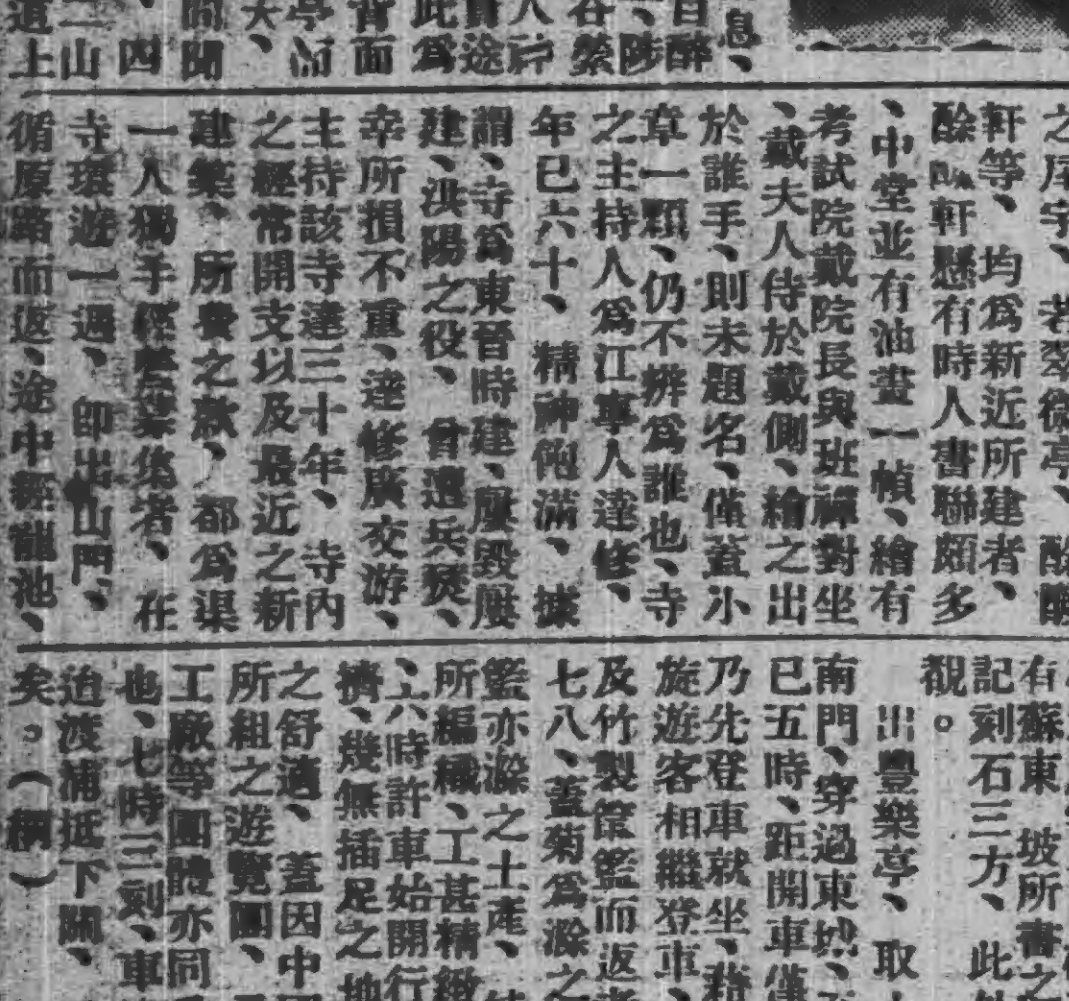 息、
自醉
此爲
背面
二山
道上
宇、若翠微亭、
軒等、均爲新近所建者、
軒懸有時人書聯頗多
、中堂並有油畫一幀、繪有
考試院戴院長與班禪對坐
、戴夫人侍於戴側、繪之出
於誰手、則未題名、僅蓋小
章一顆、仍不辨爲誰也、寺
之主持人爲江寧人達修、
年已六十、精神飽滿、據
謂、寺爲東晉時建、屢毀屢
建、洪陽之役、曾遭兵燹、
幸所損不重、達修廣交游、
主持該寺達三十年、寺內
之經常開支以及最近之新
建築、所費之款、都爲渠
一人獨手經募集者、在
寺環遊一週、即出山門、
循原路而返、途中經龍池、
有蘇東坡所書之
記刻石三方、此
觀。
出豐樂亭、取
南門、穿過東城、
已五時、距開車僅
乃先登車就坐、
旋遊客相繼登車、
及竹製筐籃而返
七八、蓋菊爲滁之
籃亦滁之土產、
所編織、工甚精緻
、六時許車始開行
擠、幾無插足之地
之舒適、蓋因中
所組之遊覽團、
工廠等團體亦同
也、七時三刻、車
迨渡浦抵下關、
矣。(綱)